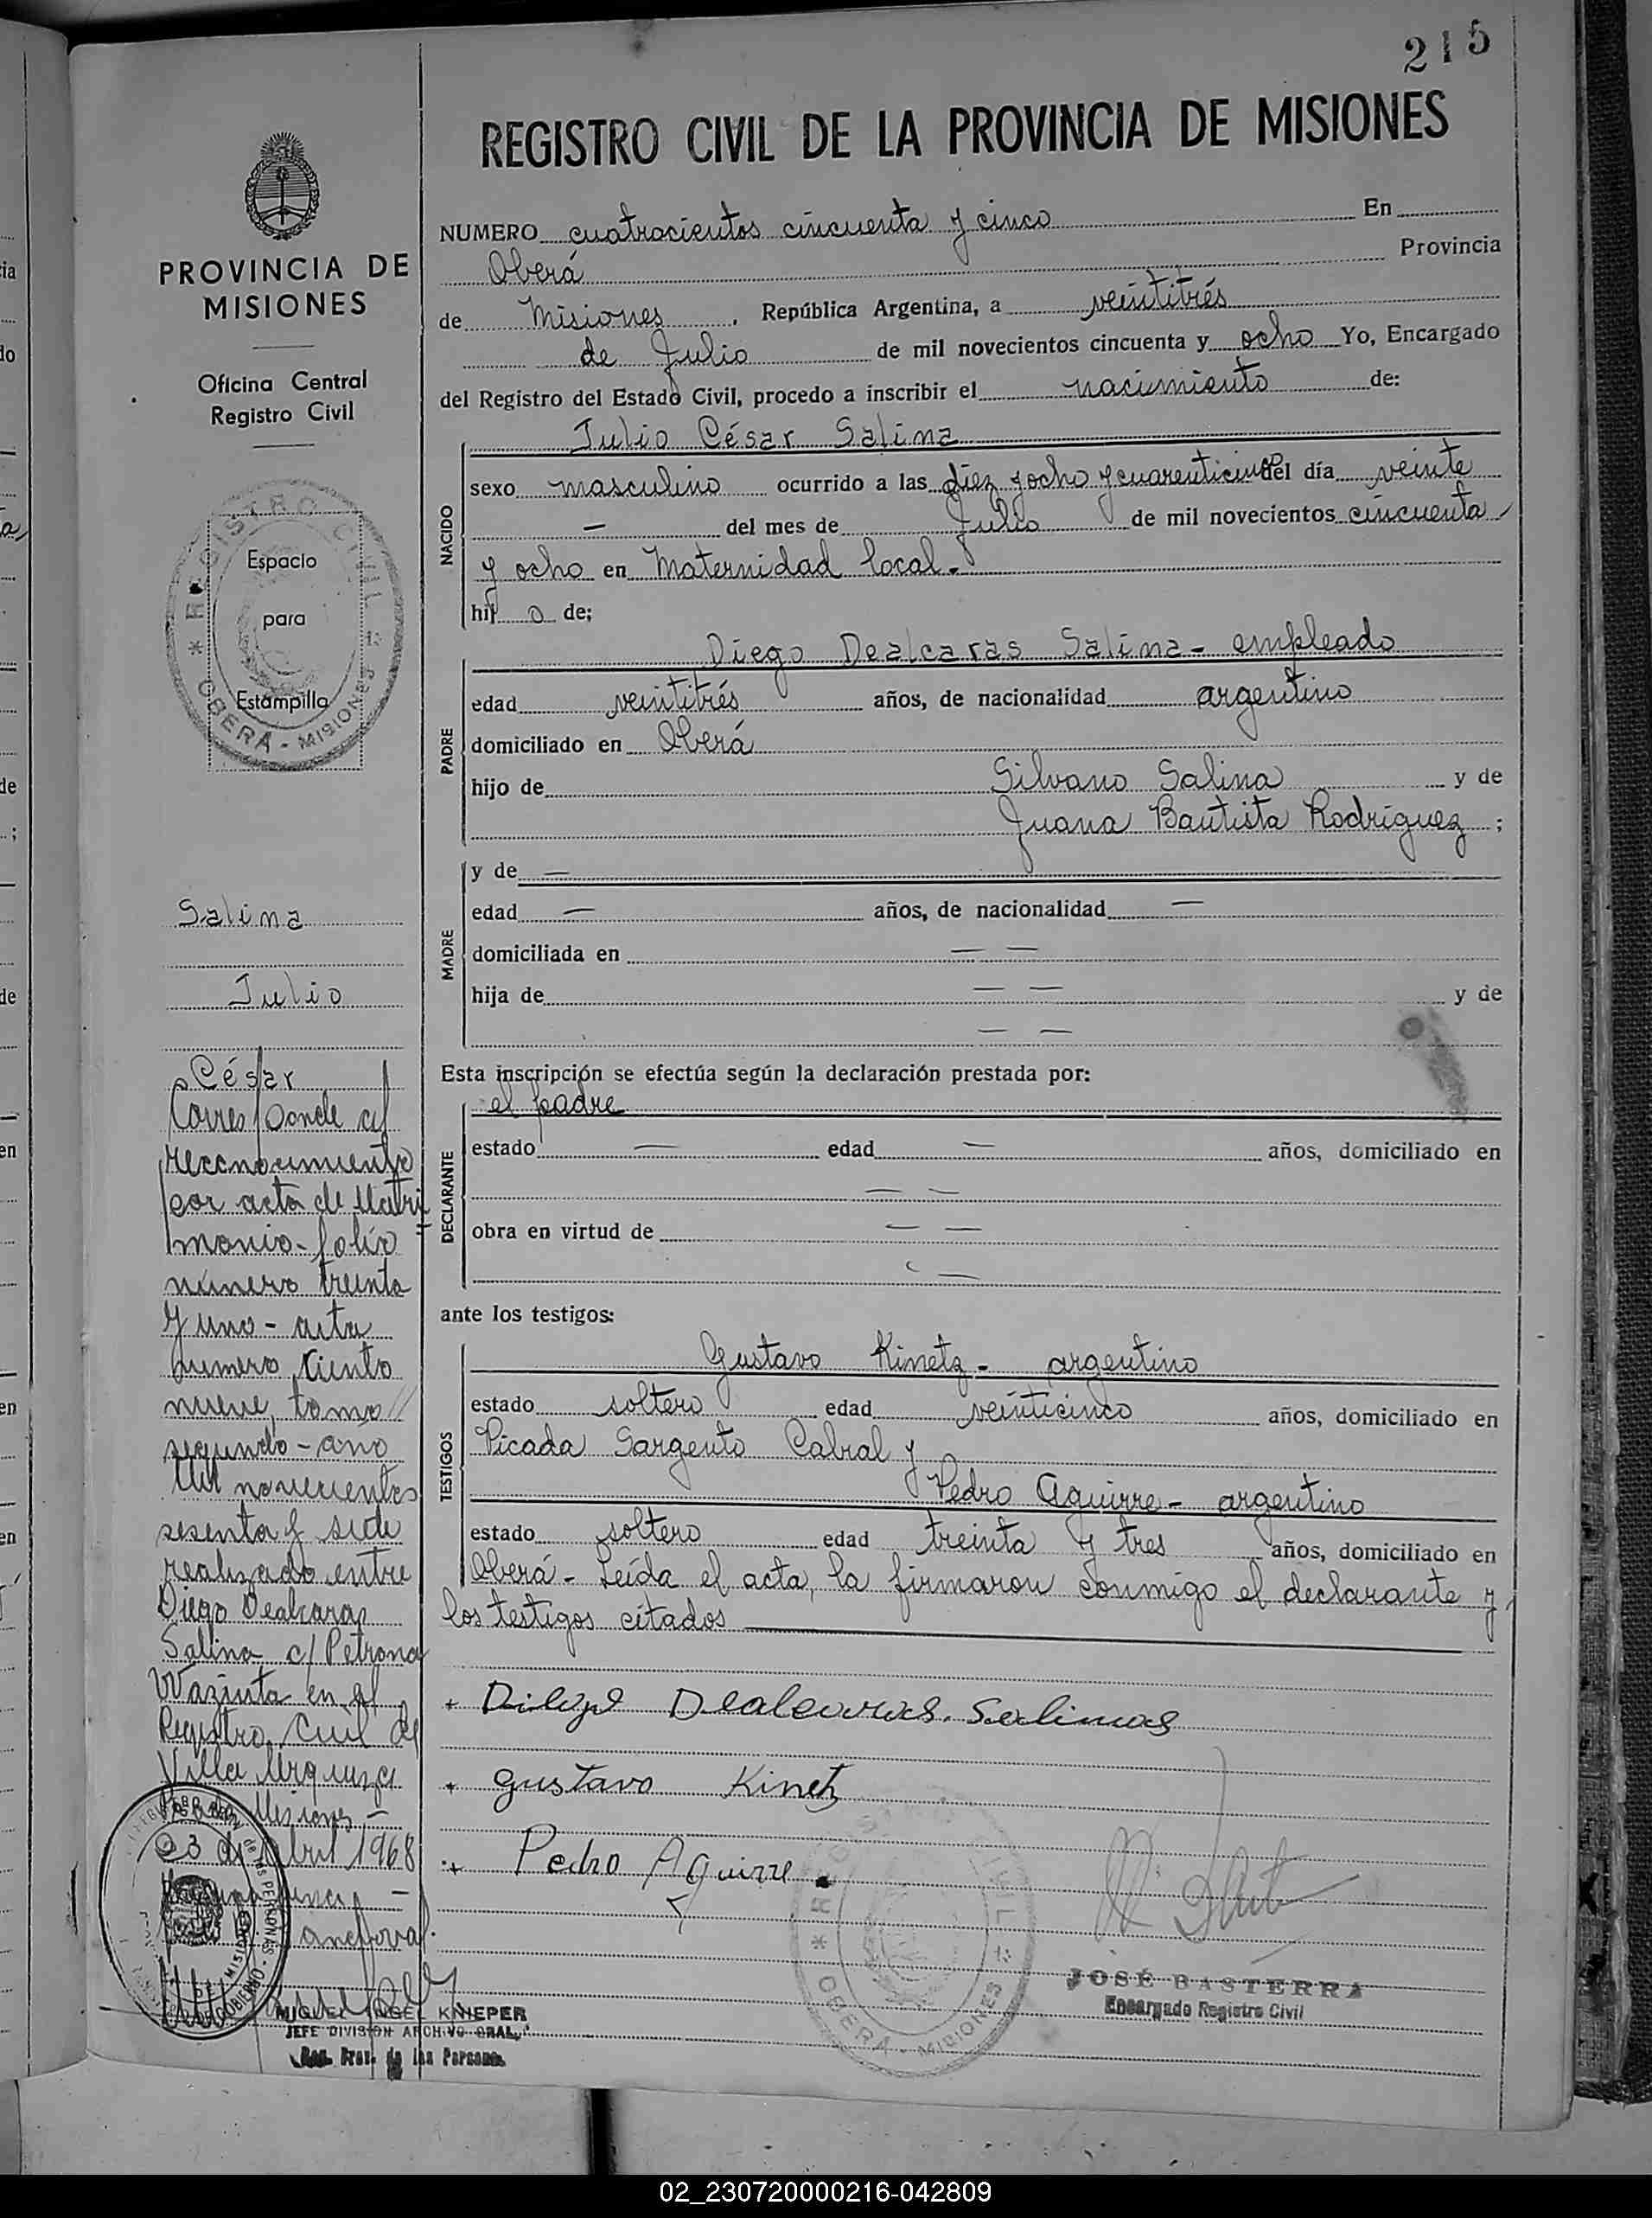 215
REGISTRO CIVIL DE LA PROVINCIA DE MISIONES
NUMERO cuatrocientos cincuenta y cinco En
Oberá Provincia
de Misiones, República Argentina, a veintitrés
de Julio de mil novecientos cincuenta y ocho Yo, Encargado
del Registro del Estado Civil, procedo a inscribir el nacimiento de:
Julio César Salina
NACIDO
sexo masculino ocurrido a las diez y ocho y cuarenticinco del día veinte
— del mes de Julio de mil novecientos cincuenta
y ocho en Maternidad local.-
hijo de;
Diego Dealcaras Salina - empleado
PADRE
edad veintitrés años, de nacionalidad argentino
domiciliado en Oberá
hijo de Silvano Salina y de
Juana Bautista Rodríguez ;
MADRE
y de —
edad — años, de nacionalidad —
domiciliada en — —
hija de — — y de
— —
Esta inscripción se efectúa según la declaración prestada por:
el padre
DECLARANTE
estado — edad — años, domiciliado en
— —
obra en virtud de — —
ante los testigos:
Gustavo Kinetz - argentino
TESTIGOS
estado soltero edad veinticinco años, domiciliado en
Picada Sargento Cabral y
Pedro Aguirre - argentino
estado soltero edad treinta y tres años, domiciliado en
Oberá - Leída el acta, la firmaron conmigo el declarante y
los testigos citados
Dealcaras. Salinas
Gustavo Kinetz
Pedro Aguirre
JOSÉ BASTERRA
Encargado Registro Civil
REGISTRO CIVIL
OBERA - MISIONES
PROVINCIA DE
MISIONES
Oficina Central
Registro Civil
REGISTRO CIVIL
Espacio
para
Estampilla
OBERA - MISIONES
Salina
Julio
César
Corresponde al
reconocimiento
por acta de Matri
monio - folio
número treinta
y uno - acta
numero ciento
nueve, tomo
segundo - año
Mil novecientos
sesenta y siete
realizado entre
Diego Dealcaras
Salina c/ Petrona
Wazinta en el
Registro Civil de
Villa Urquiza
Misiones -
23 de Abril 1968
MIGUEL ANGEL KNIEPER
JEFE DIVISION ARCHIVO GRAL.
Reg. Prov. de las Personas
02_230720000216-042809